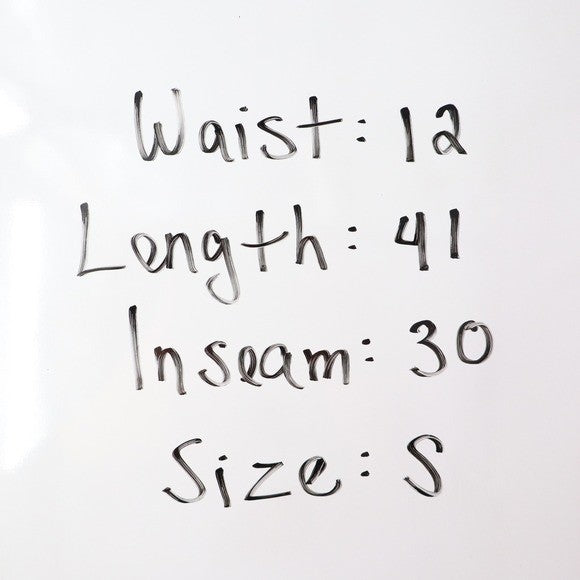 Waist: 12
Length: 41
Inseam: 30
Size: S